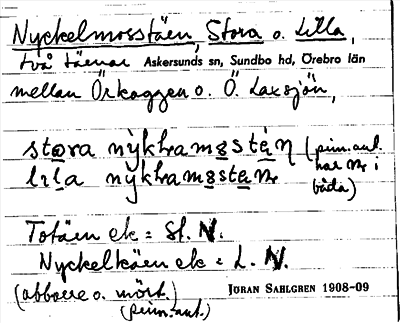 Nyckelmosstäen, Stora o. Lilla,
två täernar Askersunds sn, Sundbo hd, Örebro län
mellan Örkaggen o. Ö. Laxsjön,
stora nỳkħamǫstä̀n (prim.ant.
har i
lilla nỳkħamǫstän båda)
Totäen ek = St. N.
Nyckeltäen ek = L. N.
(abborre o. mört.)
(prim.ant.)
JÖRAN SAHLGREN 1908-09